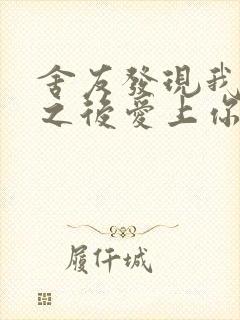 舍友發現我
之後愛上你
履仟城